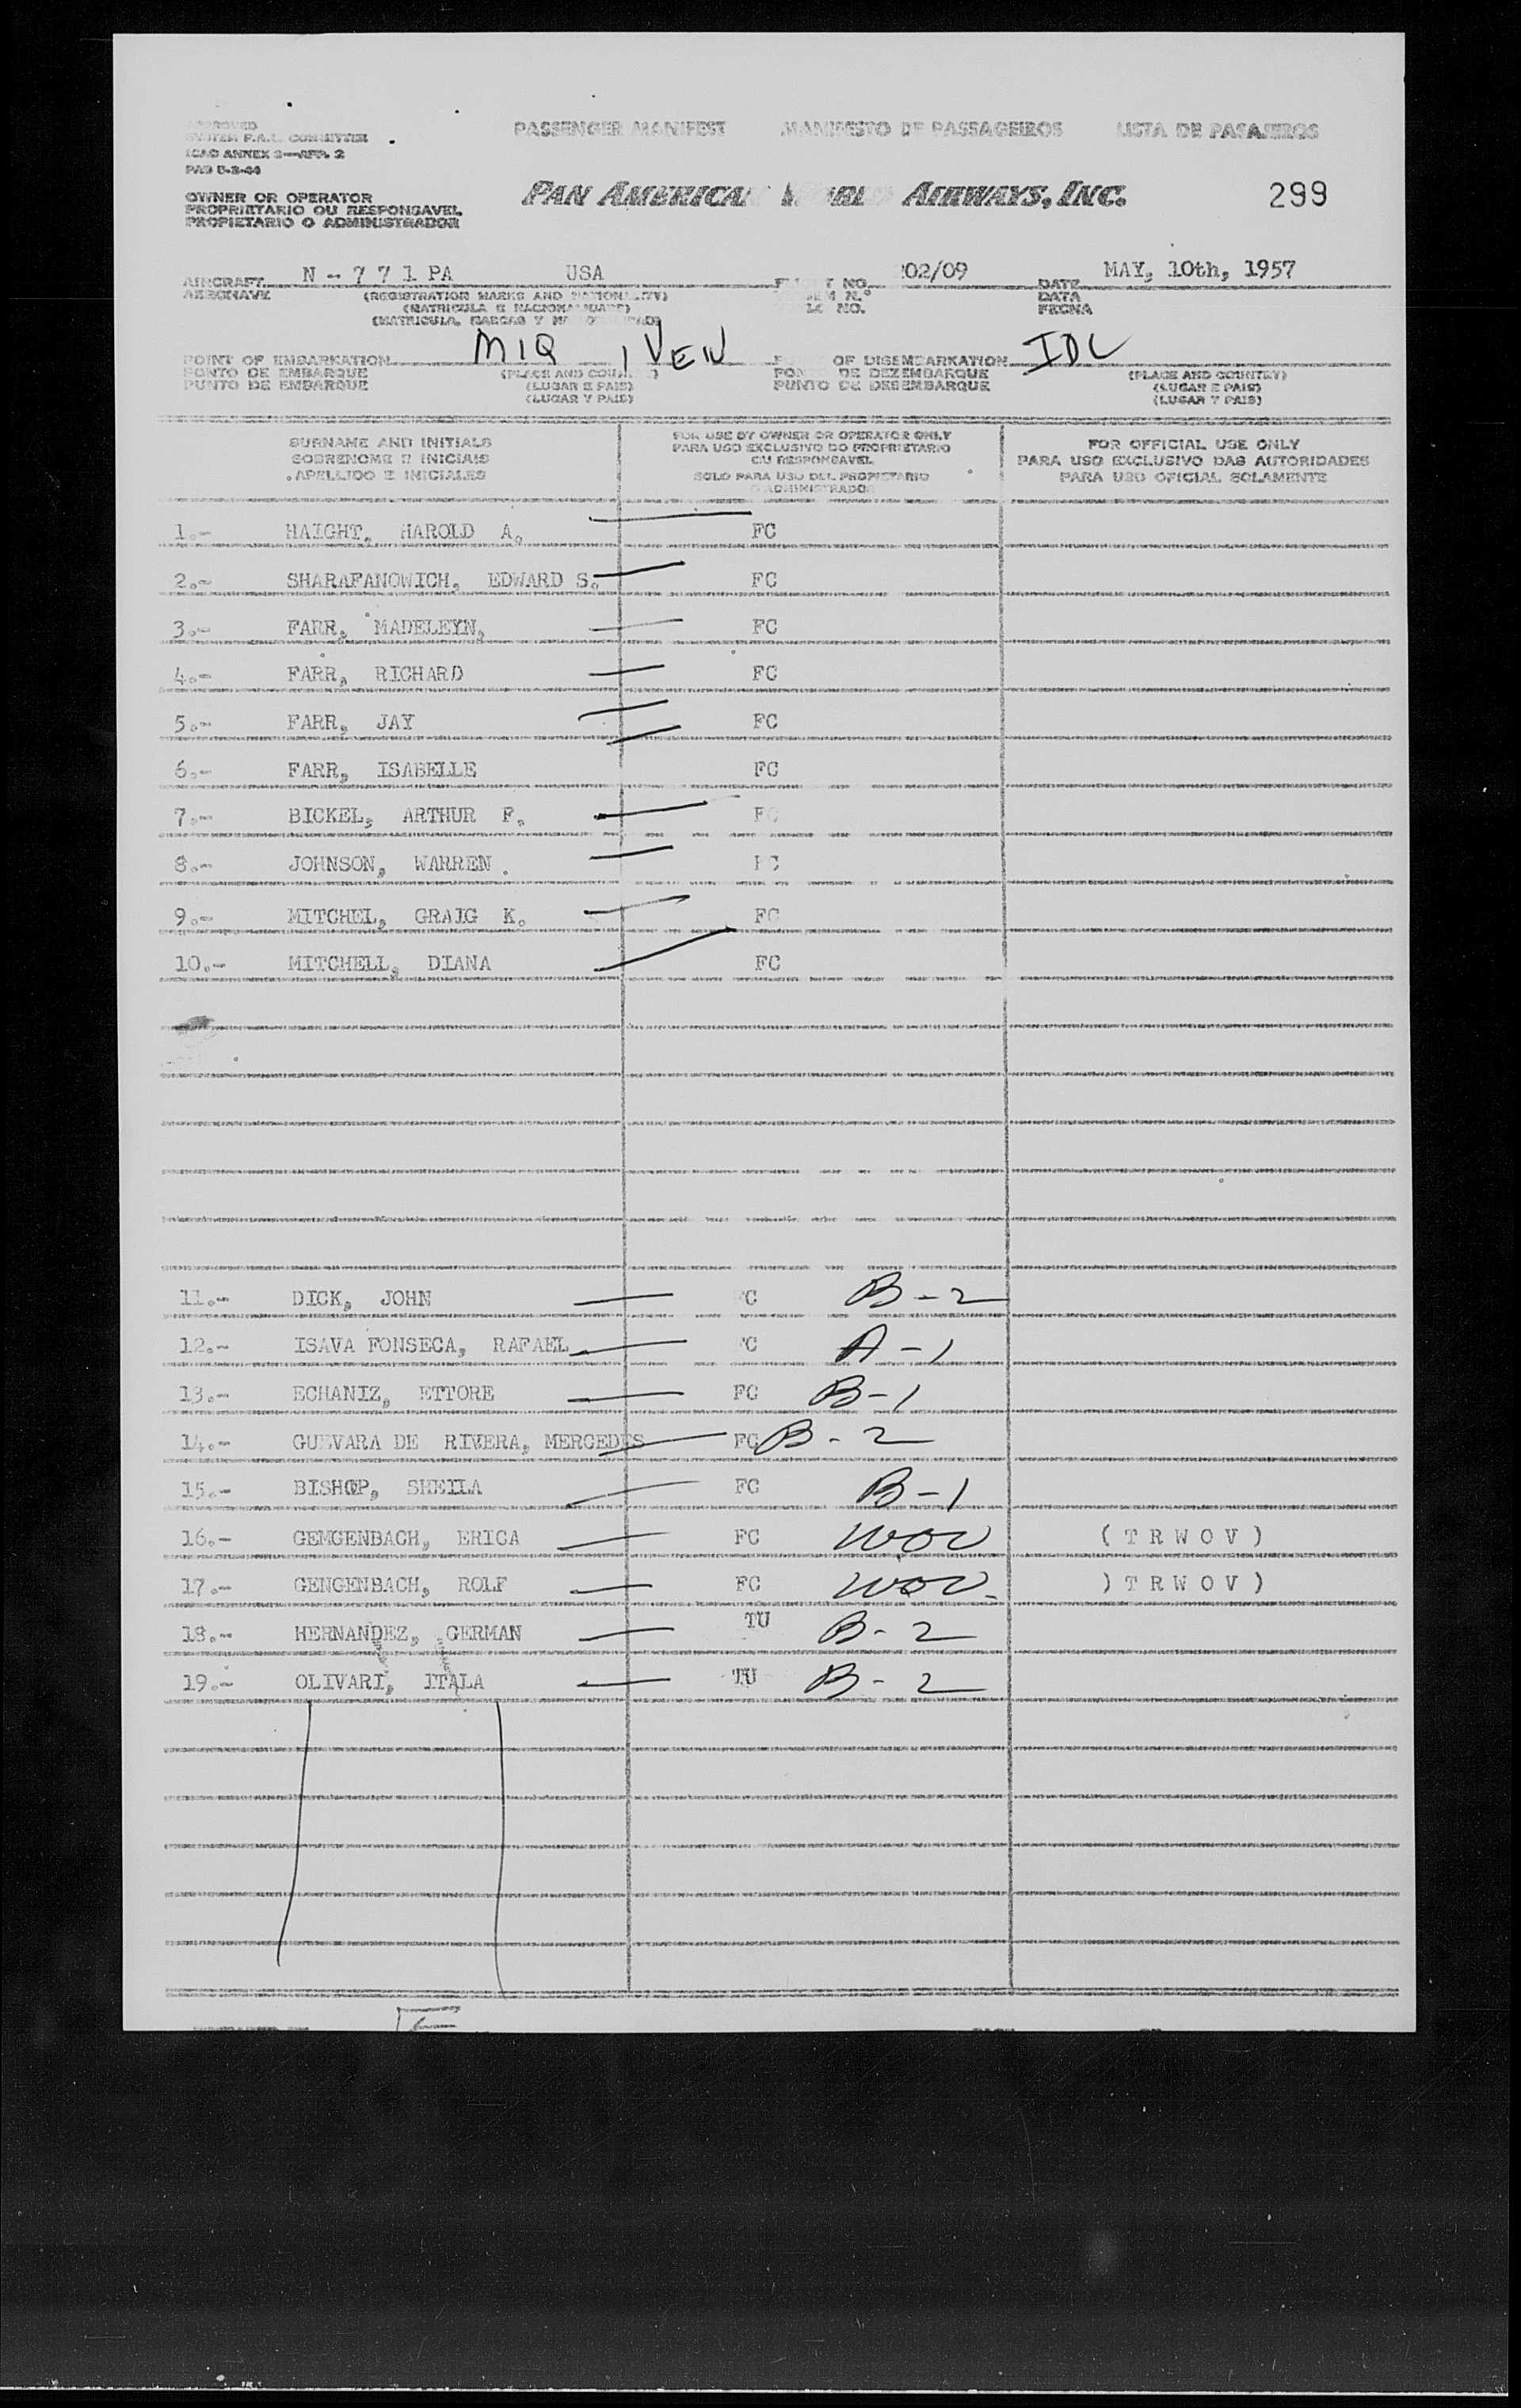 APPROVED
SYSTEM P.A.A. COMMITTEE
ICAO ANNEX 9—APP. 2
PASSENGER MANIFEST MANIFESTO DE PASSAGEIROS LISTA DE PASAJEROS
OWNER OR OPERATOR
PROPRIETARIO OU RESPONSAVEL
PROPIETARIO O ADMINISTRADOR
PAN AMERICA AIRWAYS, INC.
299
AIRCRAFT N - 7 7 1 PA USA NO. 02/09 DATE MAY, 10th, 1957
AERONAVE (REGISTRATION MARKS AND NATIONALITY) N.º DATA
(MATRICULA E NACIONALIDADE) NO. FECHA
(MATRICULA, MARCAS Y
POINT OF EMBARKATION MIQ , VEN OF DISEMBARKATION IDL
PONTO DE EMBARQUE (PLACE AND DE DEZEMBARQUE (PLACE AND COUNTRY)
PUNTO DE EMBARQUE (LUGAR E PAIS) PUNTO DE DESEMBARQUE (LUGAR E PAIS)
(LUGAR Y PAIS) (LUGAR Y PAIS)
SURNAME AND INITIALS FOR USE BY OWNER OR OPERATOR ONLY FOR OFFICIAL USE ONLY
SOBRENOME E INICIAIS PARA USO EXCLUSIVO DO PROPRIETARIO PARA USO EXCLUSIVO DAS AUTORIDADES
OU RESPONSAVEL
APELLIDO E INICIALES SOLO PARA USO DEL PROPIETARIO PARA USO OFICIAL SOLAMENTE
O ADMINISTRADOR
1.- HAIGHT, HAROLD A. FC
2.- SHARAFANOWICH, EDWARD S. FC
3.- FARR, MADELEYN, FC
4.- FARR, RICHARD FC
5.- FARR, JAY FC
6.- FARR, ISABELLE FC
7.- BICKEL, ARTHUR F. FC
8.- JOHNSON, WARREN . FC
9.- MITCHEL, GRAIG K. FC
10.- MITCHELL, DIANA FC
11.- DICK, JOHN FC B-2
12.- ISAVA FONSECA, RAFAEL FC A-1
13.- ECHANIZ, ETTORE FC B-1
14.- GUEVARA DE RIVERA, MERCEDES FC B-2
15.- BISHOP, SHEILA FC B-1
16.- GEMGENBACH, ERICA FC WOV ( T R W O V )
17.- GENGENBACH, ROLF FC WOV ) T R W O V )
18.- HERNANDEZ, GERMAN TU B-2
19.- OLIVARI, ITALA TU B-2